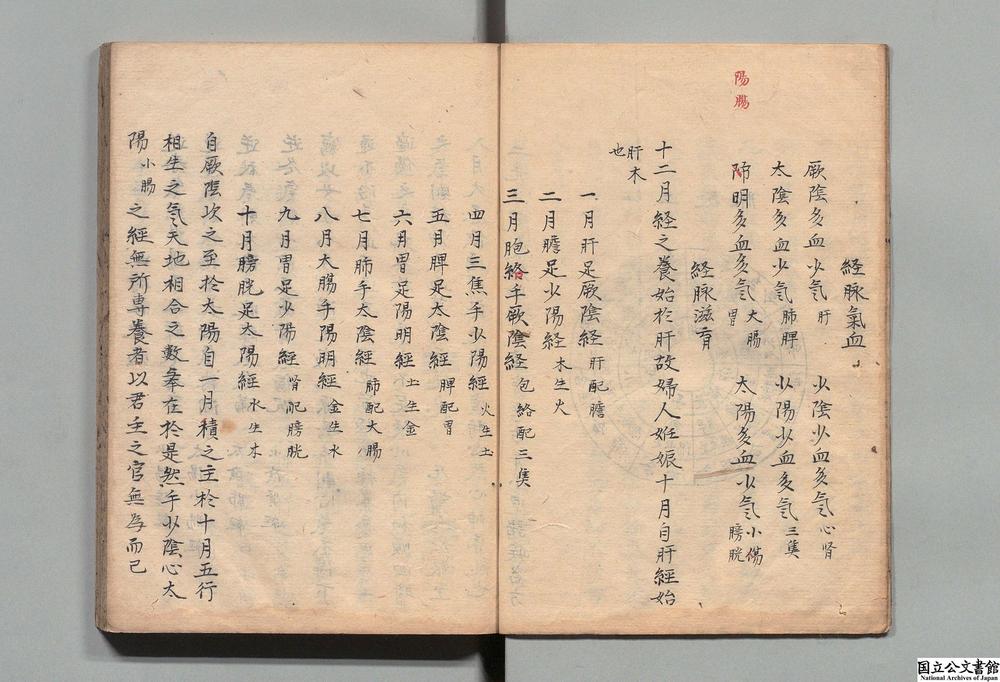 陽
腸
経脉氣血
厥陰多血少氣肝　少陰少血多氣心腎
太陰多血少氣肺脾　少陽少血多氣三焦
陽明多血多氣大腸胃　太陽多血少氣小腸膀胱
経脉滋育
十二月経之養始於肝故婦人姙娠十月自肝經始
肝木也
一月肝足厥陰経肝配膽
二月膽足少陽経木生火
三月胞絡手厥陰経包絡配三焦
四月三焦手少陽經火生土
五月脾足太陰經脾配胃
六月胃足陽明經土生金
七月肺手太陰經肺配大腸
八月大腸手陽明經金生水
九月胃足少陽經腎配膀胱
十月膀胱足太陽經水生木
自厥陰次之至於太陽自一月積之主於十月五行
相生之氣天地相合之數奉在於是然手少陰心太
陽小腸之經無所専養者以君主之官無為而已
国立公文書館
National Archives of Japan